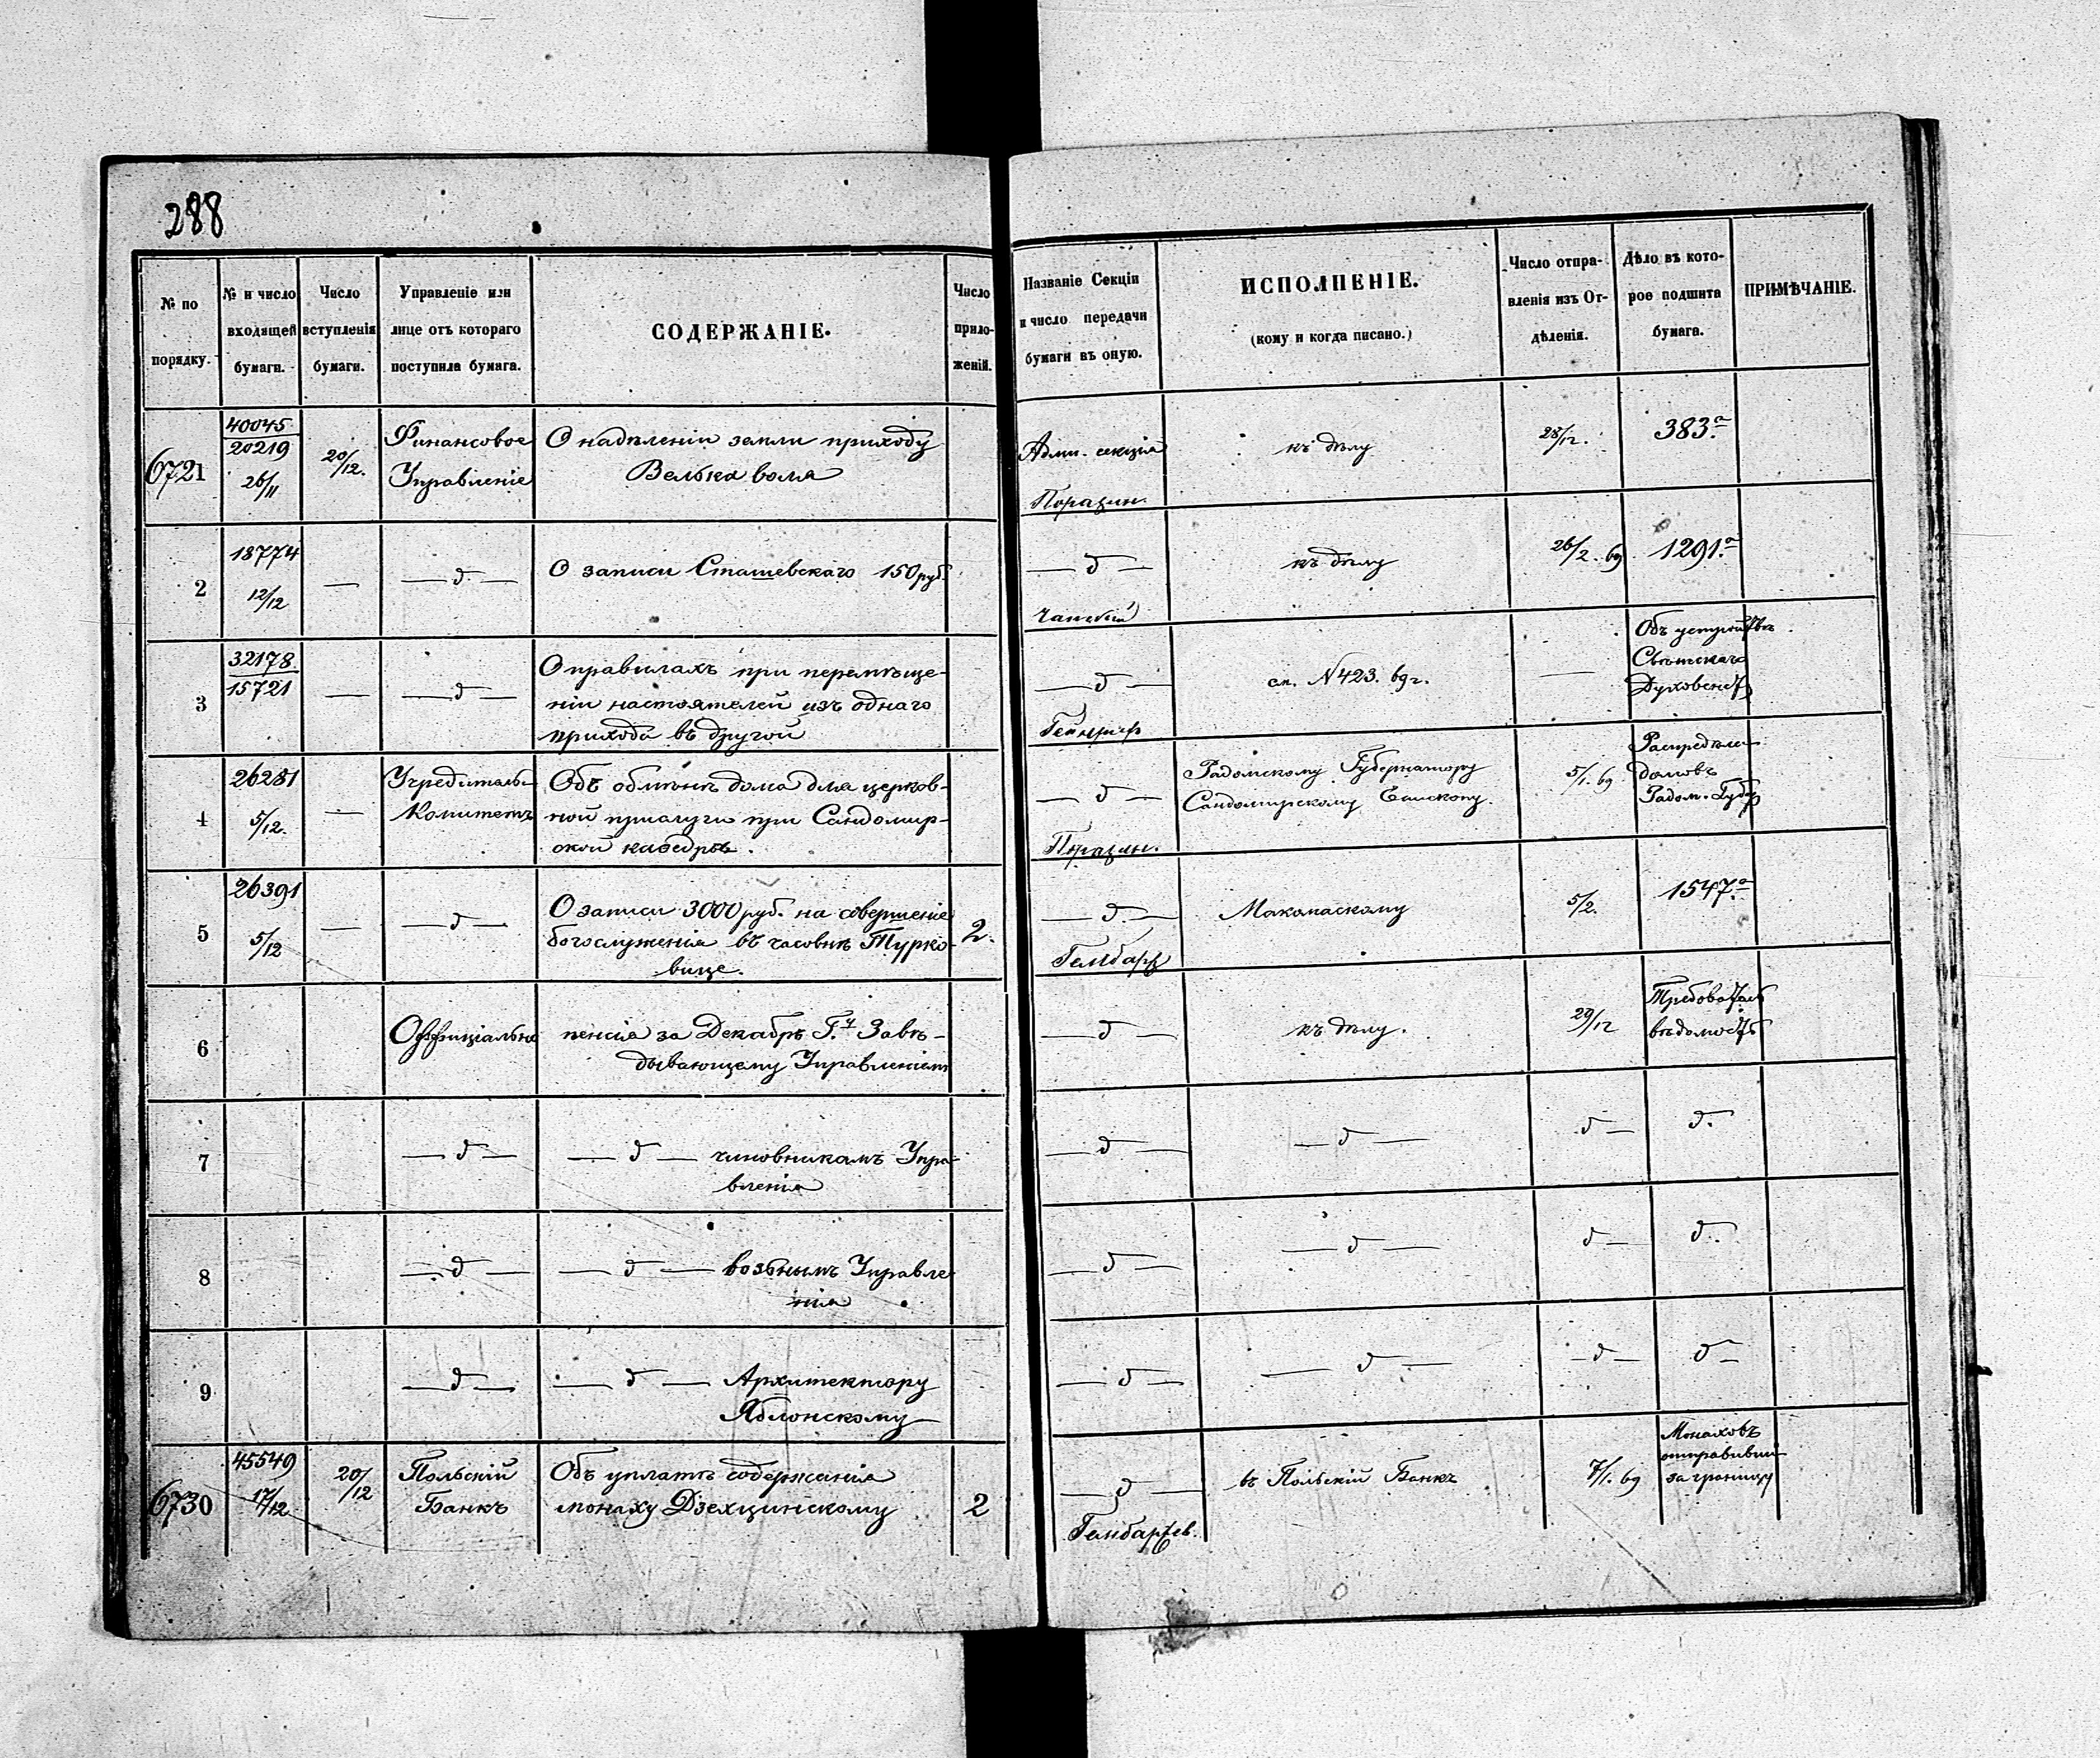 288
№ по порядку.
№ и число входящей бумаги.
Число вступленія бумаги.
Управленіе или лице отъ котораго поступила бумага.
СОДЕРЖАНІЕ.
Число прило-женій.
Названіе Секціи и число передачи бумаги въ оную.
ИСПОЛНЕНІЕ.
(кому и когда писано.)
Число отпра-вленія изъ От-дѣленія.
Дѣло въ кото-рое подшита бумага.
ПРИМѢЧАНІЕ.
6721
40045
20219
26/11
20/12.
Финансовое
Управленіе
О надѣленіи земли приходу
Велька воля
Адми. секція
къ дѣлу
28/12.
383.а
2
18774
12/12
—
— д —
О записи Сташевскаго 150 руб.
— д —
къ дѣлу
26/2. 69
1291.а
3
32178
15721
—
— д —
О правилахъ при перемѣще-
ніи настоятелей изъ однаго
прихода въ другой
— д —
см. N 423. 69 г.
—
Объ устройствѣ
Свѣтскаго
Духовенст
4
26281
5/12.
—
Учредительн
Комитетъ
Объ обмѣнѣ дома для церков-
ной прислуги при Сандомир-
ской кафедрѣ.
— д —
Радомскому Губернатору
Сандомирскому Епископу.
5/1. 69
Распредѣле
домовъ
Радом. Губер
5
26391
5/12
—
— д —
О записи 3000 руб. на совершеніе
богослуженія въ часовнѣ Турко-
вице.
2.
— д. —
5/2.
1547.а
6
Оффиціально
пенсія за Декабрь Г.ну Завѣ-
дывающему Управленіем
— д —
къ дѣлу.
29/12
Требоват
вѣдомость
7
— д —
— д — чиновникамъ Упра-
вленія
— д —
— д —
д —
д.
8
— д —
— д — возьнымъ Управле-
нія
— д —
— д —
д —
д.
9
— д —
— д — Архитектору
Яблонскому
— д —
— д —
— д —
д —
6730
45549
17/12
20/12
Польскій
Банкъ
Объ уплатѣ содержанія
монаху Дзехцинскому
2
— д —
въ Польскій Банкъ
7/1. 69
Монаховъ
отправивши
за границу